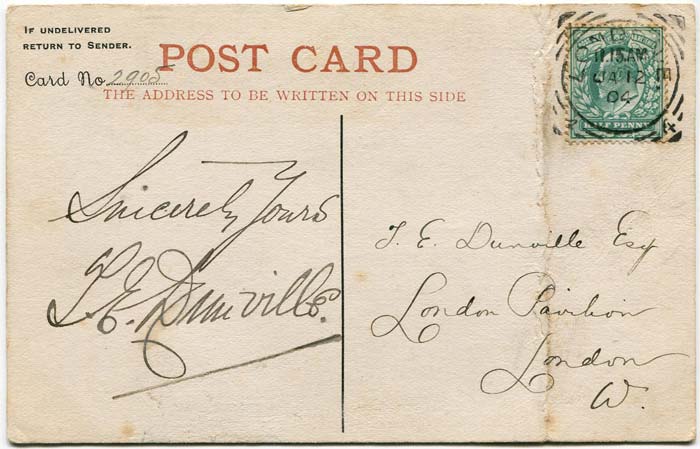 IF UNDELIVERED
RETURN TO SENDER.
Card No. 2905
POST CARD
THE ADDRESS TO BE WRITTEN ON THIS SIDE
11.15AM
JA 12
04
4
HALF PENNY
Sincerely Yours
T. E. Dunville.
T. E. Dunville Esq
London Pavilion
London
W.